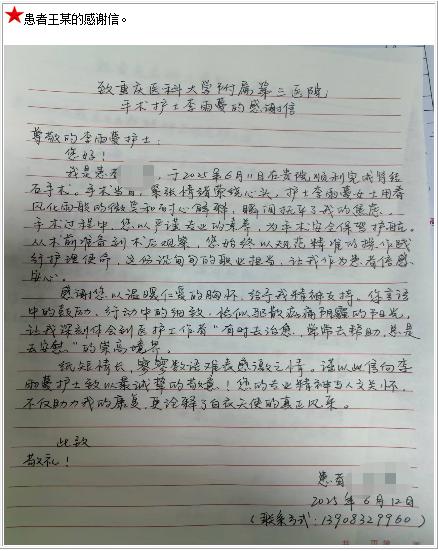 ★患者王某的感谢信。
致重庆医科大学附属第三医院
手术护士李雨蔓的感谢信
尊敬的李雨蔓护士:
您好!
我是患者 ,于2025年6月11日在贵院顺利完成肾结
石手术。手术当日,紧张情绪萦绕心头,护士李雨蔓女士用春
风化雨般的微笑和耐心解释,瞬间抚平了我的焦虑。
手术过程中,您以严谨专业的素养,为手术安全保驾护航。
从术前准备到术后观察,您始终以规范精准的操作践
行护理使命,这份沉甸甸的职业担当,让我作为患者倍感
安心。
感谢您以温暖仁爱的胸怀,给予我精神支持。你言语
中的鼓励,行动中的细致,恰似驱散病痛阴霾的阳光,
让我深刻体会到医护工作者“有时去治愈,常常去帮助,总是
去安慰”的崇高境界。
纸短情长,寥寥数语难表感激之情。谨以此信向李
雨蔓护士致以最诚挚的敬意!您的专业精神与人文关怀,
不仅助力我的康复,更诠释了白衣天使的真正风采。
此致
敬礼!
患者
2025年6月12日
(联系方式:13908329960)